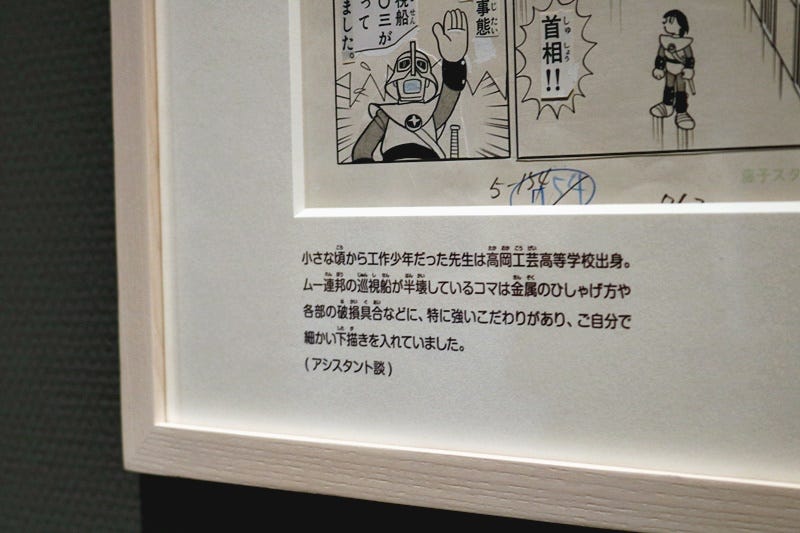 事態
じたい
視船
しせん
〇三が
って
ました。
首相!!
しゅしょう
5-154
藤子スタ
小さな頃から工作少年だった先生は高岡工芸高等学校出身。
ムー連邦の巡視船が半壊しているコマは金属のひしゃげ方や
各部の破損具合などに、特に強いこだわりがあり、ご自分で
細かい下描きを入れていました。
(アシスタント談)